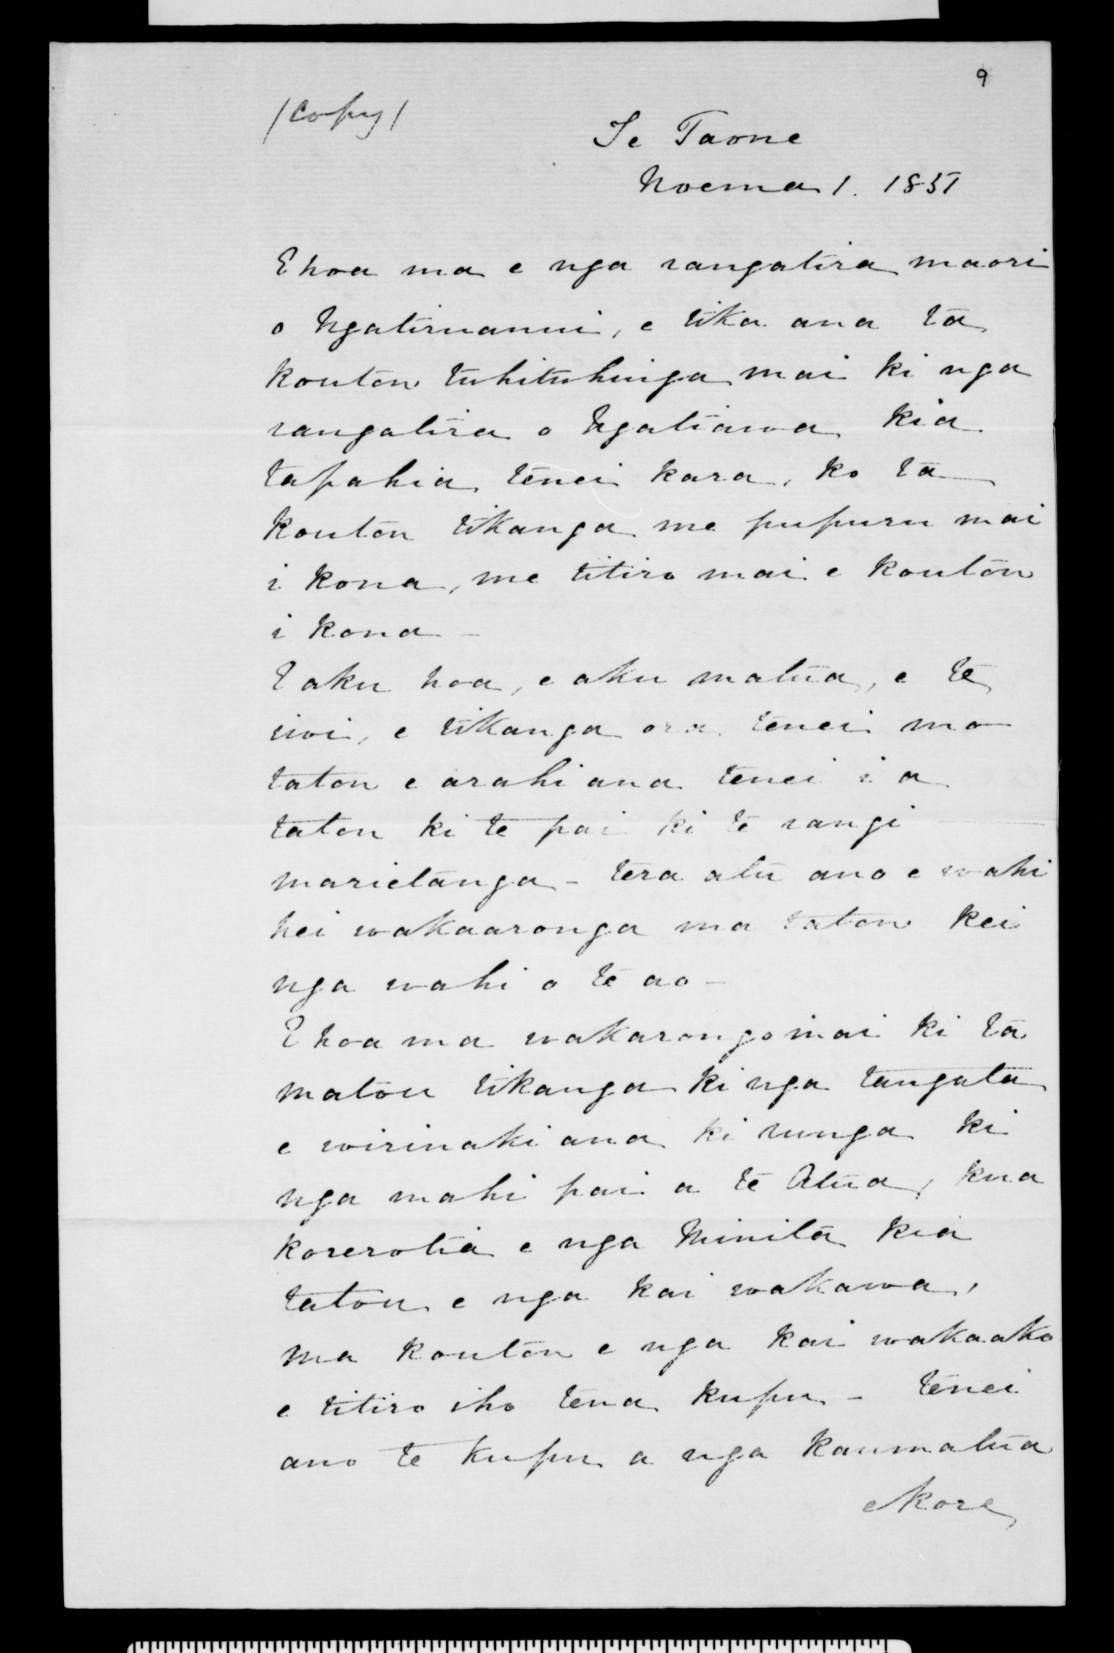 9
/Copy/
Te Taone
Noema 1. 1851
E hoa ma e nga rangatira maori
o Ngatiruanui, e tika ana ta
koutou tuhituhinga mai ki nga
rangatira o Ngatiawa kia
tapahia tenei kara, ko ta
koutou tikanga me pupuru mai
i kona, me titiro mai e koutou
i kona -
E aku hoa, e aku matua, e te
iwi, e tikanga ora tenei mo
tatou e arahi ana tenei i a
tatou ki te pai ki te rangi
marietanga - tera atu ano e wahi
hei wakaaronga ma tatou kei
nga wahi o te ao -
E hoa ma wakarongo mai ki ta
matou tikanga ki nga tangata
e wirinaki ana ki runga ki
nga mahi pai a te Atua, kua
korerotia e nga Minita kia
tatou e nga kai wakawa,
ma koutou e nga kai wakaako
e titiro iho tena kupu - tenei
ano te kupu a nga kaumatua
e kore